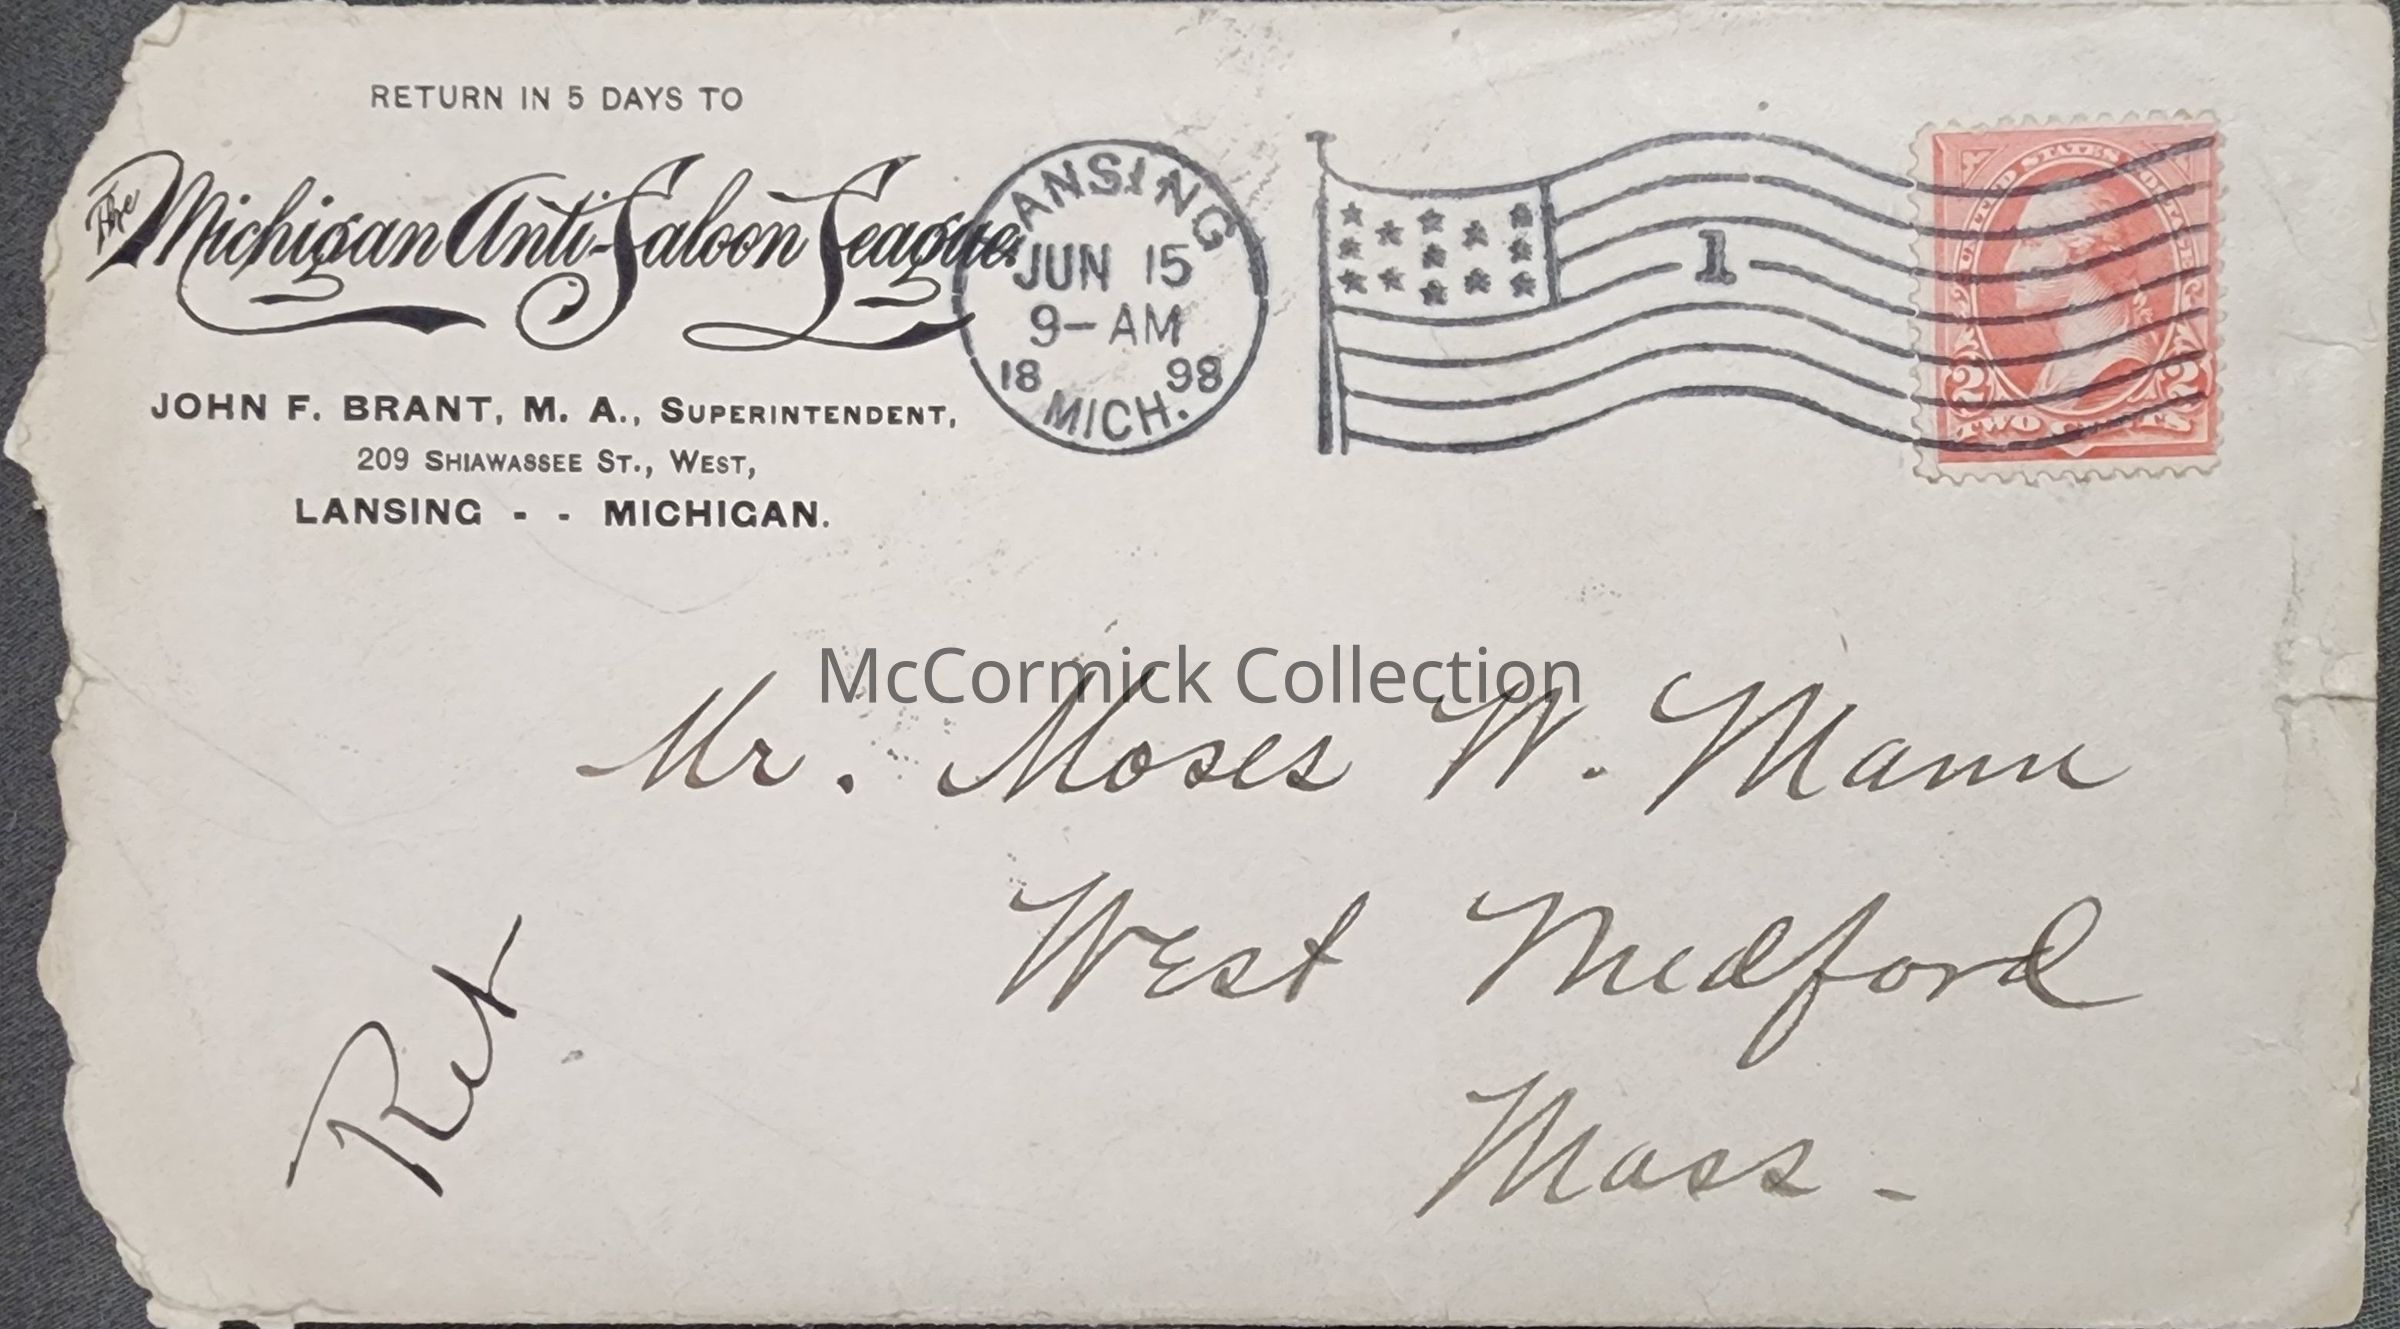 RETURN IN 5 DAYS TO
The Michigan Anti-Saloon League.
JOHN F. BRANT, M. A., SUPERINTENDENT,
209 SHIAWASSEE ST., WEST,
LANSING - - MICHIGAN.
LANSING
JUN 15
9-AM
18 98
MICH.
1
UNITED STATES POSTAGE
2 2
TWO CENTS
McCormick Collection
Mr. Moses W. Mann
West Medford
Mass -